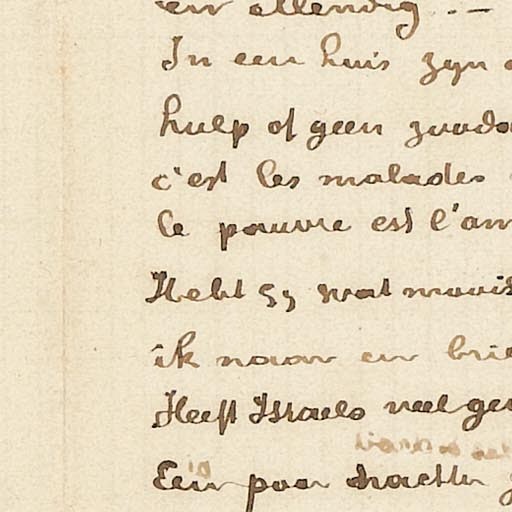 en ellendig ..–
In een huis zyn
hulp of geen
c'est les malades
le pauvre est l'am
Hebt gy wat moois
ik naar en brie
Heeft Israels veel ge
Een paar